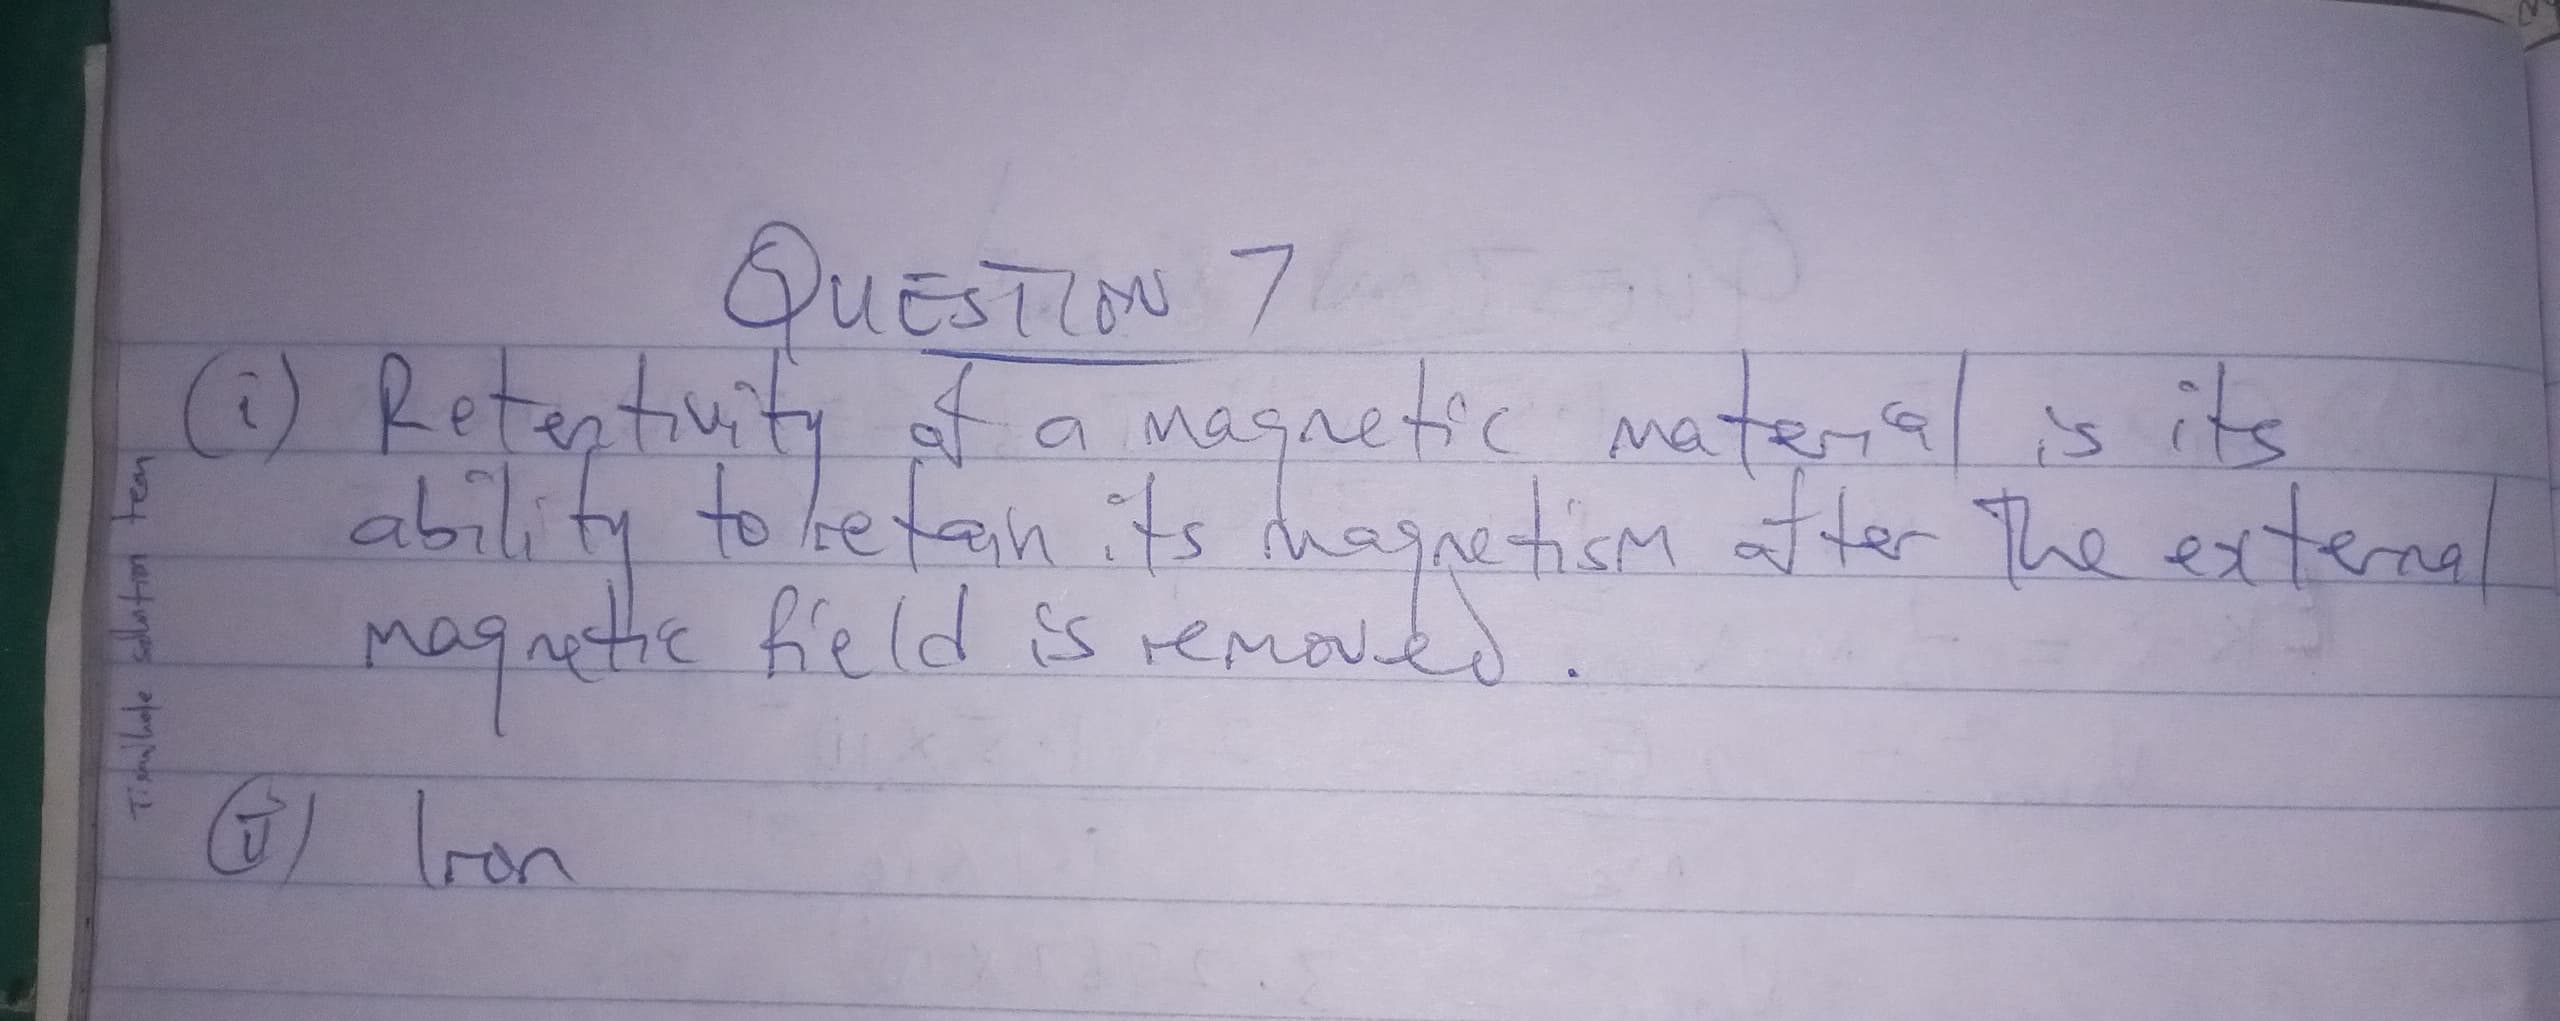 QUESTION 7
(i) Retentivity of a magnetic material is its
ability to retain its magnetism after the external
magnetic field is removed.
(ii) Iron
solution team